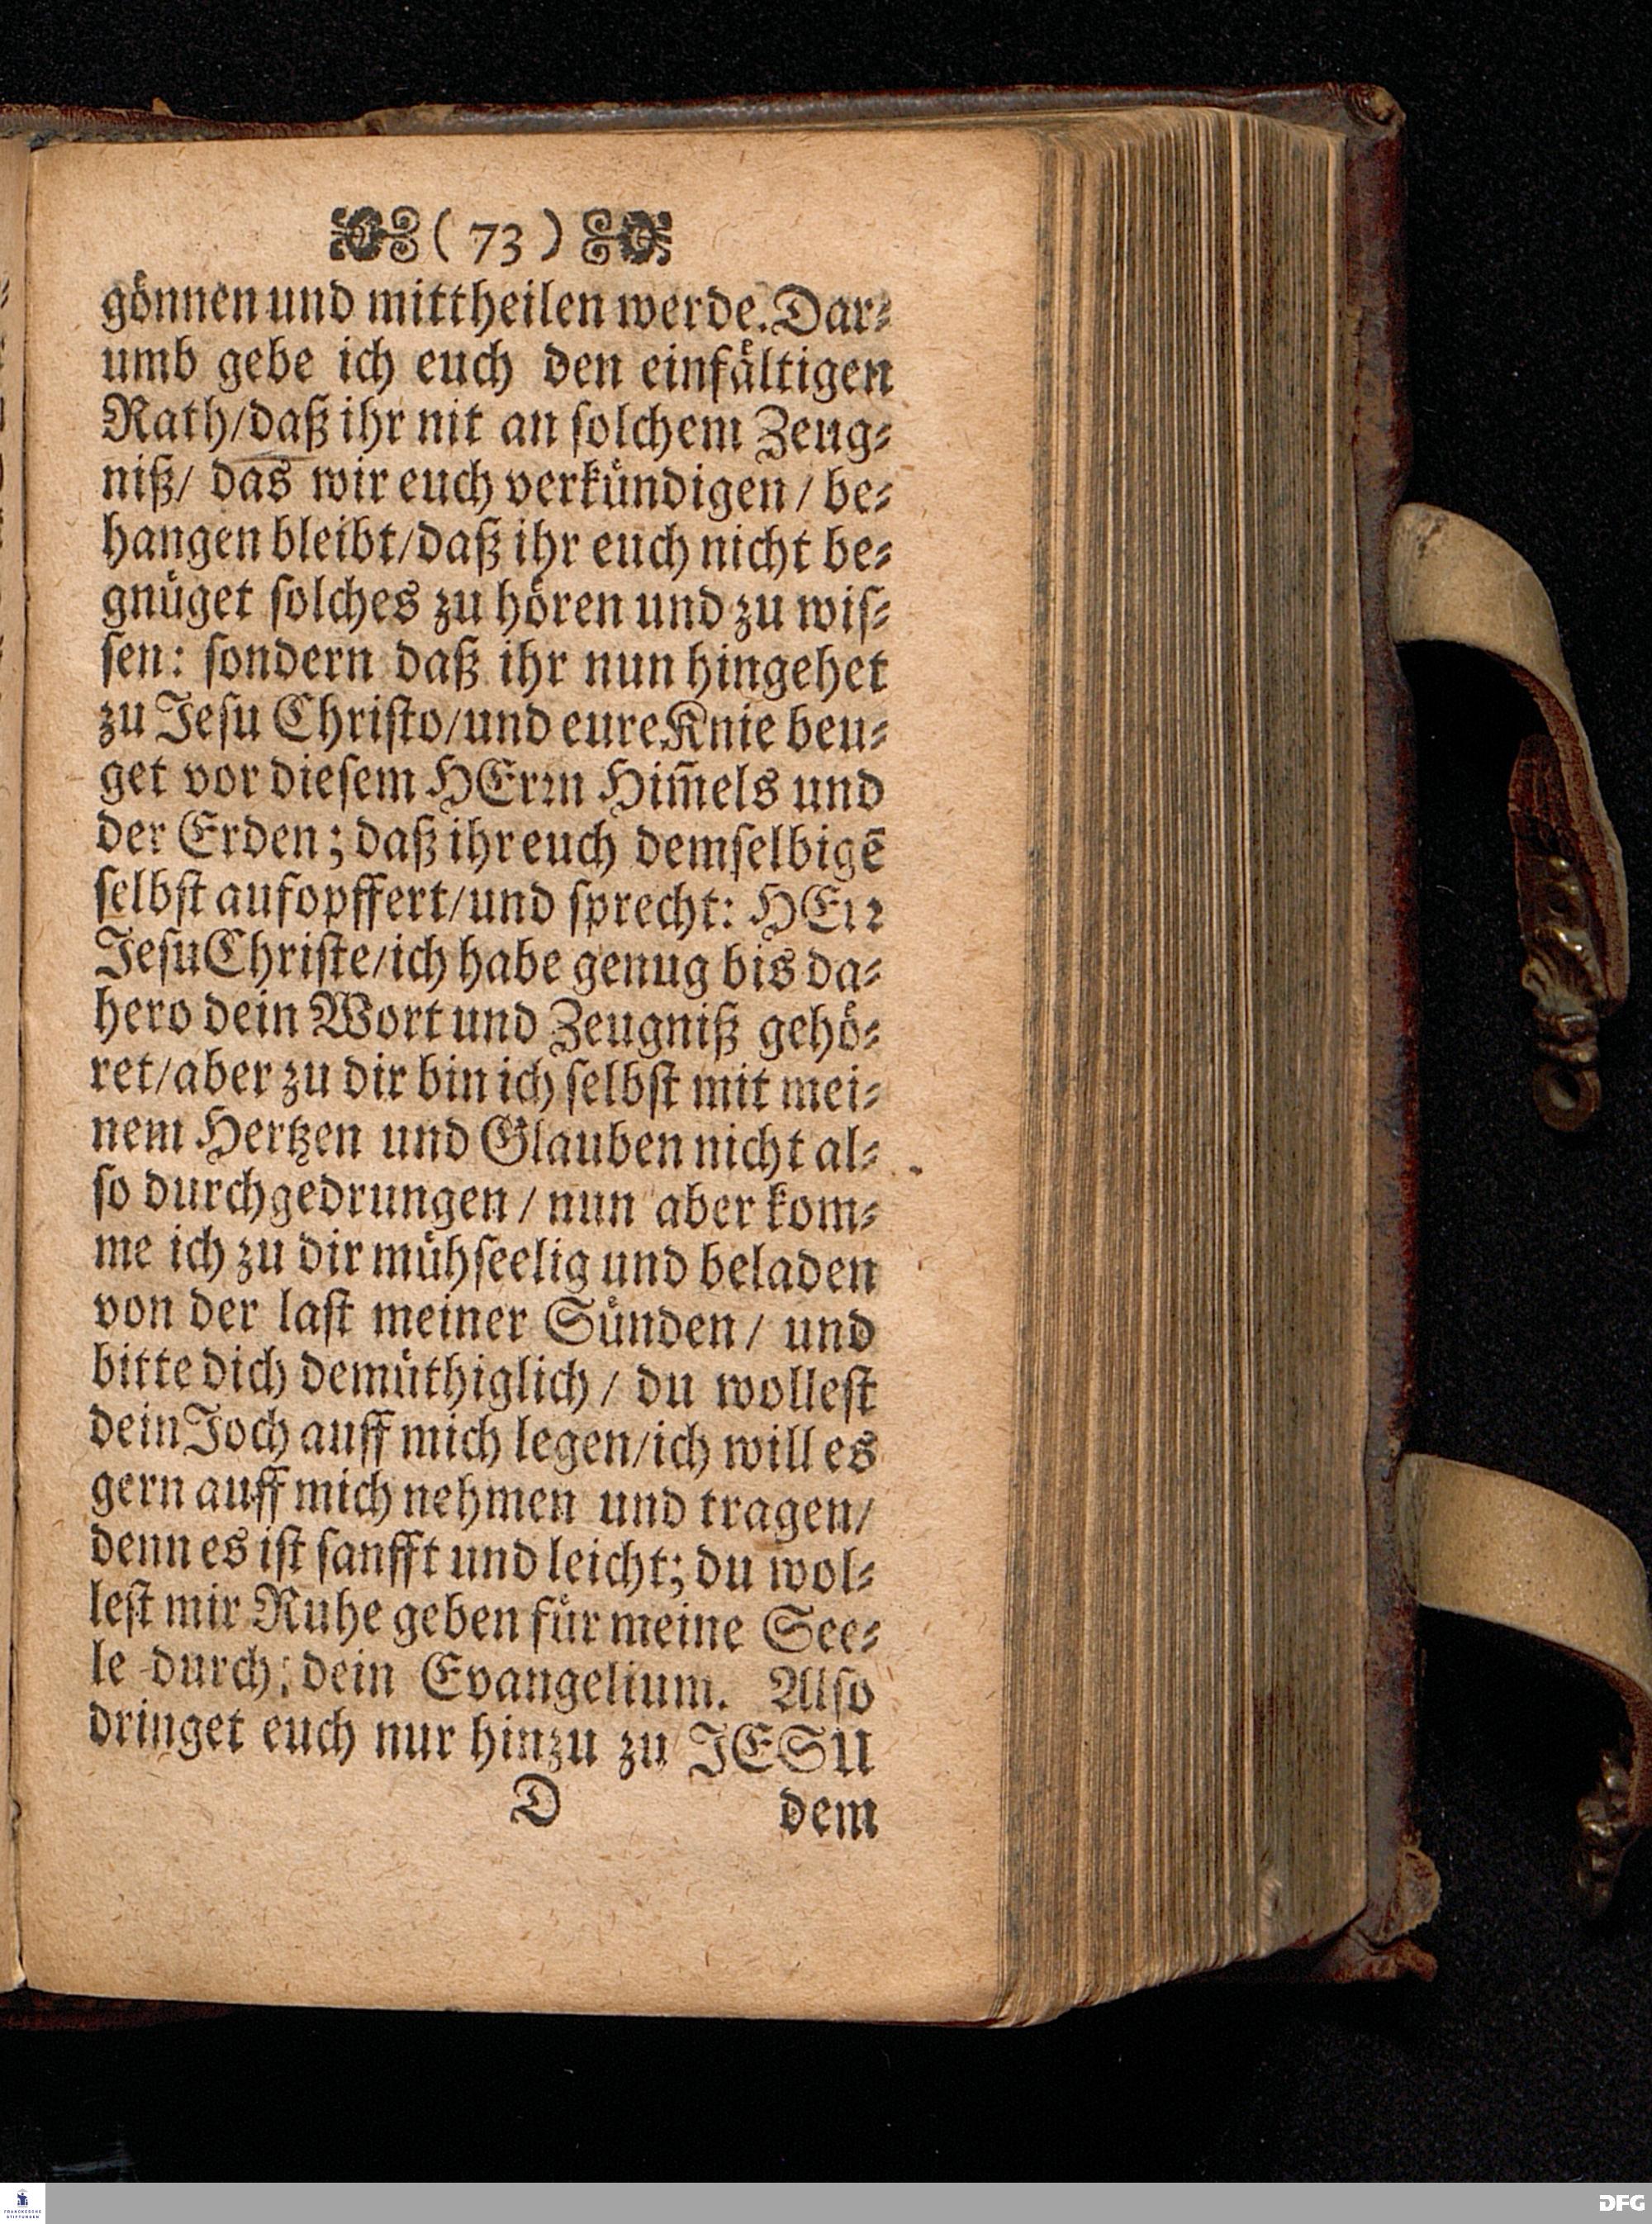 ( 73 )
gönnen und mittheilen werde. Dar⸗
umb gebe ich euch den einfältigen
Rath/daß ihr nit an ſolchem Zeug⸗
niß/ das wir euch verkündigen / be⸗
hangen bleibt/daß ihr euch nicht be⸗
gnüget ſolches zu hören und zu wiſ⸗
ſen: ſondern daß ihr nun hingehet
zu Jeſu Chriſto/und eure Knie beu⸗
get vor dieſem HErꝛn Him̃els und
der Erden; daß ihr euch demſelbigē
ſelbſt aufopffert/und ſprecht: HErꝛ
JeſuChriſte/ich habe genug bis da⸗
hero dein Wort und Zeugniß gehö⸗
ret/aber zu dir bin ich ſelbſt mit mei⸗
nem Hertzen und Glauben nicht al⸗
ſo durchgedrungen / nun aber kom⸗
me ich zu dir mühſeelig und beladen
von der laſt meiner Sünden / und
bitte dich demüthiglich / du wolleſt
dein Joch auff mich legen/ich will es
gern auff mich nehmen und tragen/
denn es iſt ſanfft und leicht; du wol⸗
leſt mir Ruhe geben für meine See⸗
le durch dein Evangelium. Alſo
dringet euch nur hinzu zu JESU
D dem
FRANCKESCHE
STIFTUNGEN
DFG